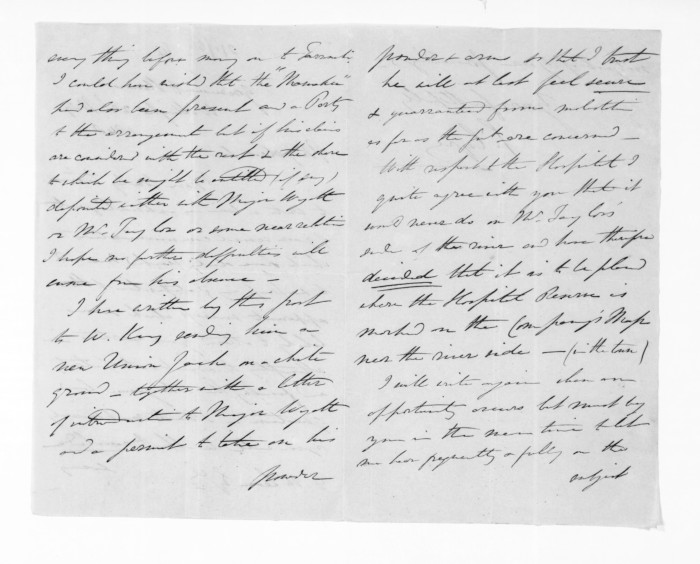 every thing before moving on to Taranaki
I could have wished that the "Mamaku"
had also been present and a Party
to the arrangement but if his claims
are considered with the rest & the share
to which he might be entitled (if any)
deposited either with Major Wyatt
or Mr Taylor or some near relation
I hope no further difficulties will
ensue from his absence –
I have written by this post
to W. King sending him a
new Union Jack on a white
ground – together with a letter
of introduction to Major Wyatt
and a permit to take on his
powder
powder & arms so that I trust
he will at last feel secure
& guaranteed from molestn
as far as the Govt are concerned –
With respect to the Hospital I
quite agree with you that it
would never do on Mr Taylor's
side of the river and have therefore
decided that it is to be placed
where the Hospital Reserve is
marked on the Company's Map
near the river side – (in the town)
I will write again when an
opportunity occurs but must beg
you in the mean time to let
me hear frequently & fully on the
subject